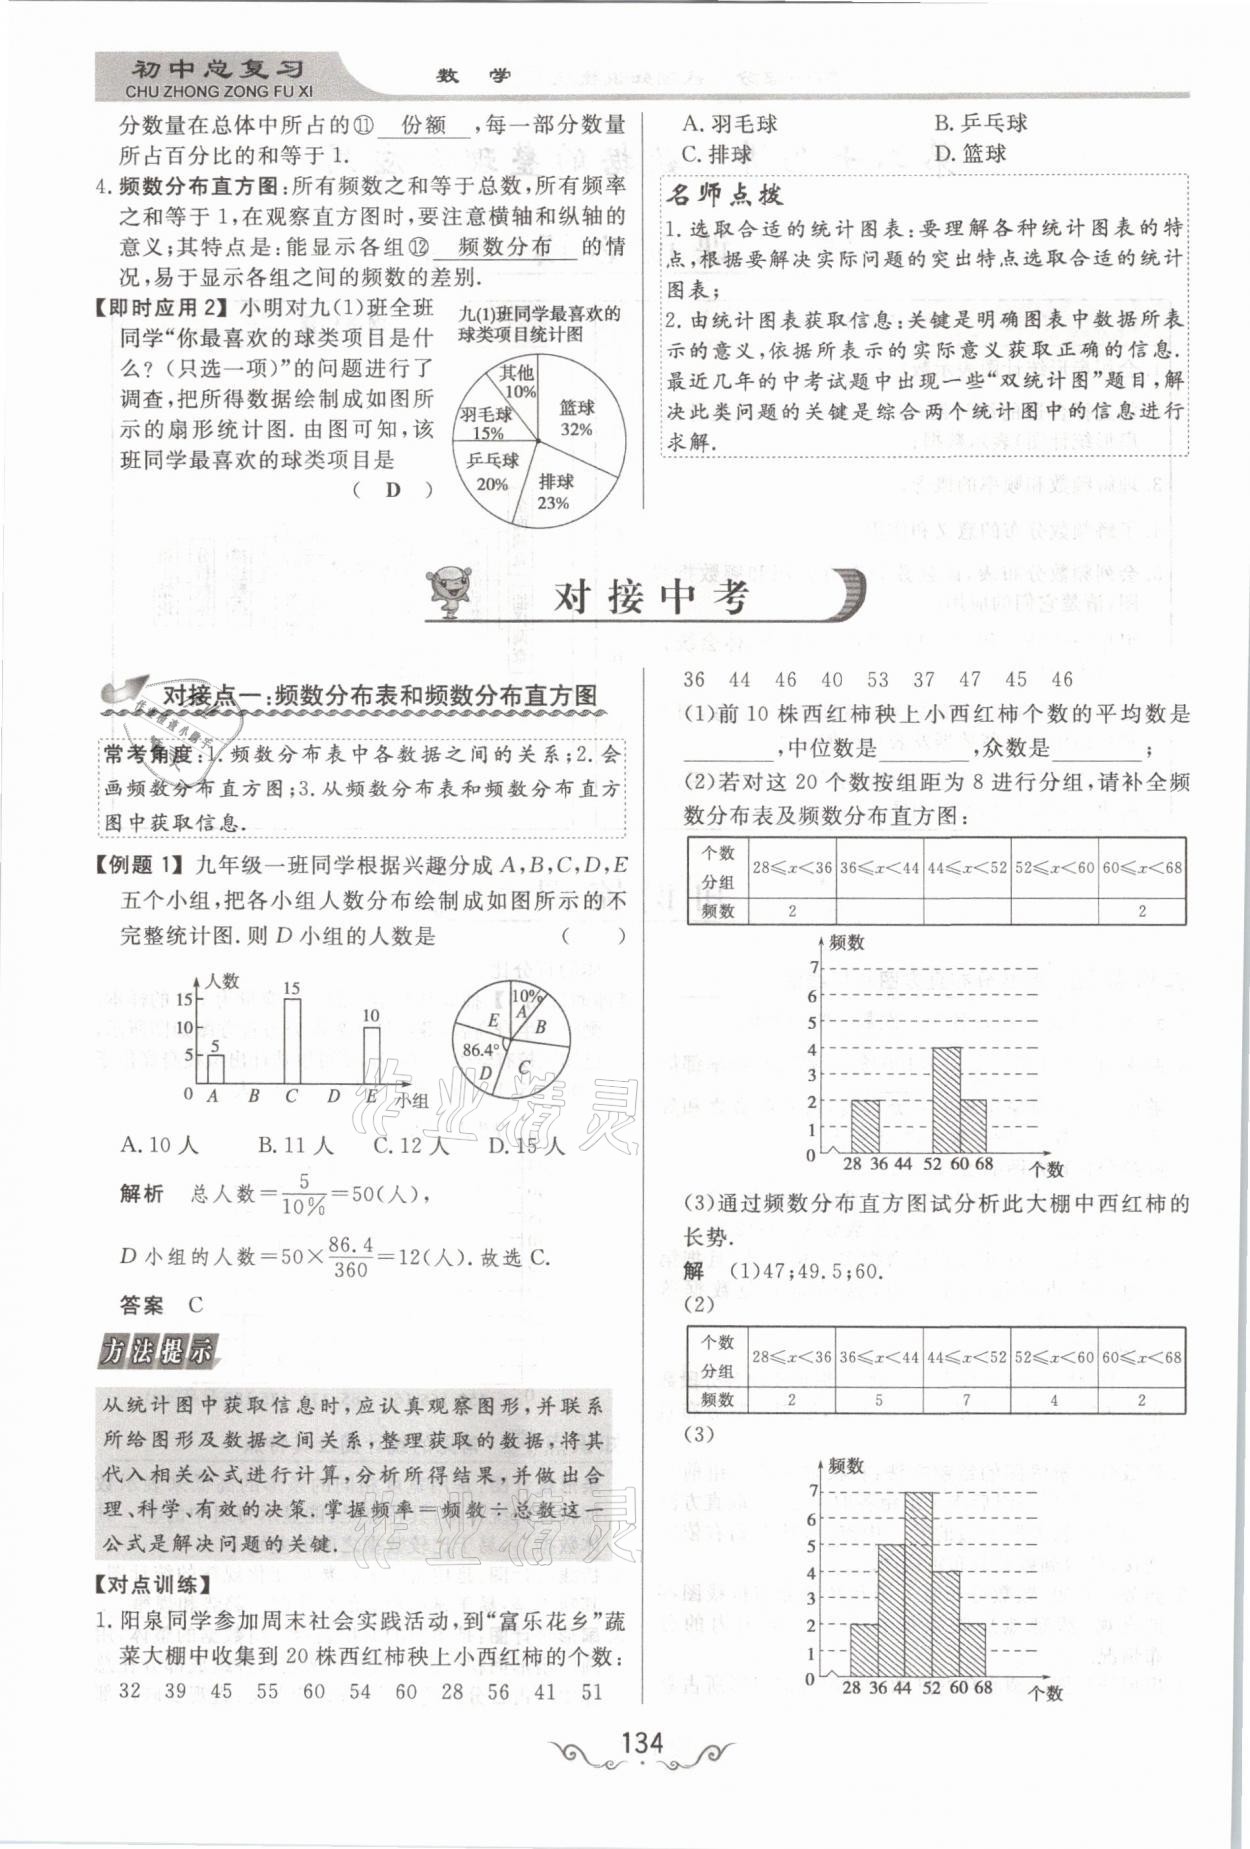 初中总复习
CHU ZHONG ZONG FU XI
数 学
分数量在总体中所占的⑪ 份额 ,每一部分数量
所占百分比的和等于1.
4. 频数分布直方图:所有频数之和等于总数,所有频率
之和等于1,在观察直方图时,要注意横轴和纵轴的
意义;其特点是:能显示各组⑫ 频数分布 的情
况,易于显示各组之间的频数的差别.
【即时应用2】小明对九(1)班全班
同学“你最喜欢的球类项目是什
么?(只选一项)”的问题进行了
调查,把所得数据绘制成如图所
示的扇形统计图.由图可知,该
班同学最喜欢的球类项目是
( D )
九(1)班同学最喜欢的
球类项目统计图
其他
10%
篮球
32%
羽毛球
15%
乒乓球
20%
排球
23%
A. 羽毛球 B. 乒乓球
C. 排球 D. 篮球
名师点拨
1. 选取合适的统计图表:要理解各种统计图表的特
点,根据要解决实际问题的突出特点选取合适的统计
图表;
2. 由统计图表获取信息:关键是明确图表中数据所表
示的意义,依据所表示的实际意义获取正确的信息.
最近几年的中考试题中出现一些“双统计图”题目,解
决此类问题的关键是综合两个统计图中的信息进行
求解.
对接中考
对接点一:频数分布表和频数分布直方图
常考角度:1. 频数分布表中各数据之间的关系;2. 会
画频数分布直方图;3. 从频数分布表和频数分布直方
图中获取信息.
【例题1】九年级一班同学根据兴趣分成A,B,C,D,E
五个小组,把各小组人数分布绘制成如图所示的不
完整统计图.则D小组的人数是 ( )
人数
15
10
5
0
5
15
10
A B C D E 小组
10%
A
B
C
D
E
86.4°
A. 10人 B. 11人 C. 12人 D. 15人
解析 总人数=5/10%=50(人),
D小组的人数=50×86.4/360=12(人).故选C.
答案 C
方法提示
从统计图中获取信息时,应认真观察图形,并联系
所给图形及数据之间关系,整理获取的数据,将其
代入相关公式进行计算,分析所得结果,并做出合
理、科学、有效的决策.掌握频率=频数÷总数这一
公式是解决问题的关键.
【对点训练】
1. 阳泉同学参加周末社会实践活动,到“富乐花乡”蔬
菜大棚中收集到20株西红柿秧上小西红柿的个数:
32 39 45 55 60 54 60 28 56 41 51
36 44 46 40 53 37 47 45 46
(1)前10株西红柿秧上小西红柿个数的平均数是
________,中位数是________,众数是________;
(2)若对这20个数按组距为8进行分组,请补全频
数分布表及频数分布直方图:
个数分组 28≤x<36 36≤x<44 44≤x<52 52≤x<60 60≤x<68
频数 2 2
频数
7
6
5
4
3
2
1
0
28 36 44 52 60 68 个数
(3)通过频数分布直方图试分析此大棚中西红柿的
长势.
解 (1)47;49.5;60.
(2)
个数分组 28≤x<36 36≤x<44 44≤x<52 52≤x<60 60≤x<68
频数 2 5 7 4 2
(3)
频数
7
6
5
4
3
2
1
0
28 36 44 52 60 68 个数
134
作业精灵
作业精灵